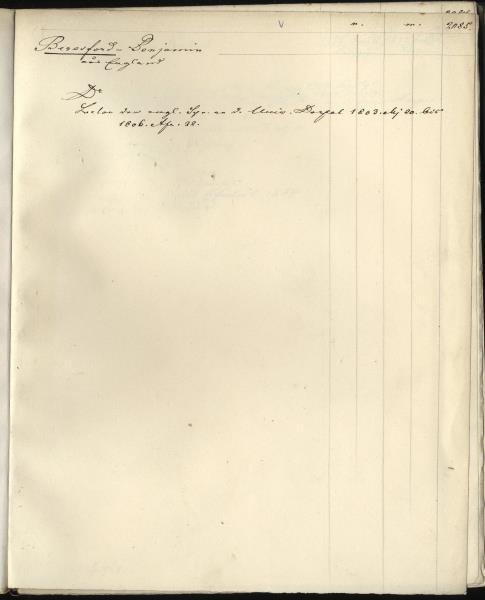 v n. m. 2085.
Beresford - Benjamin
aus England
Dr
Lector der engl. Spr. an d. Univ. Dorpat 1803. Mz 20. bis
1806. Apr. 22.